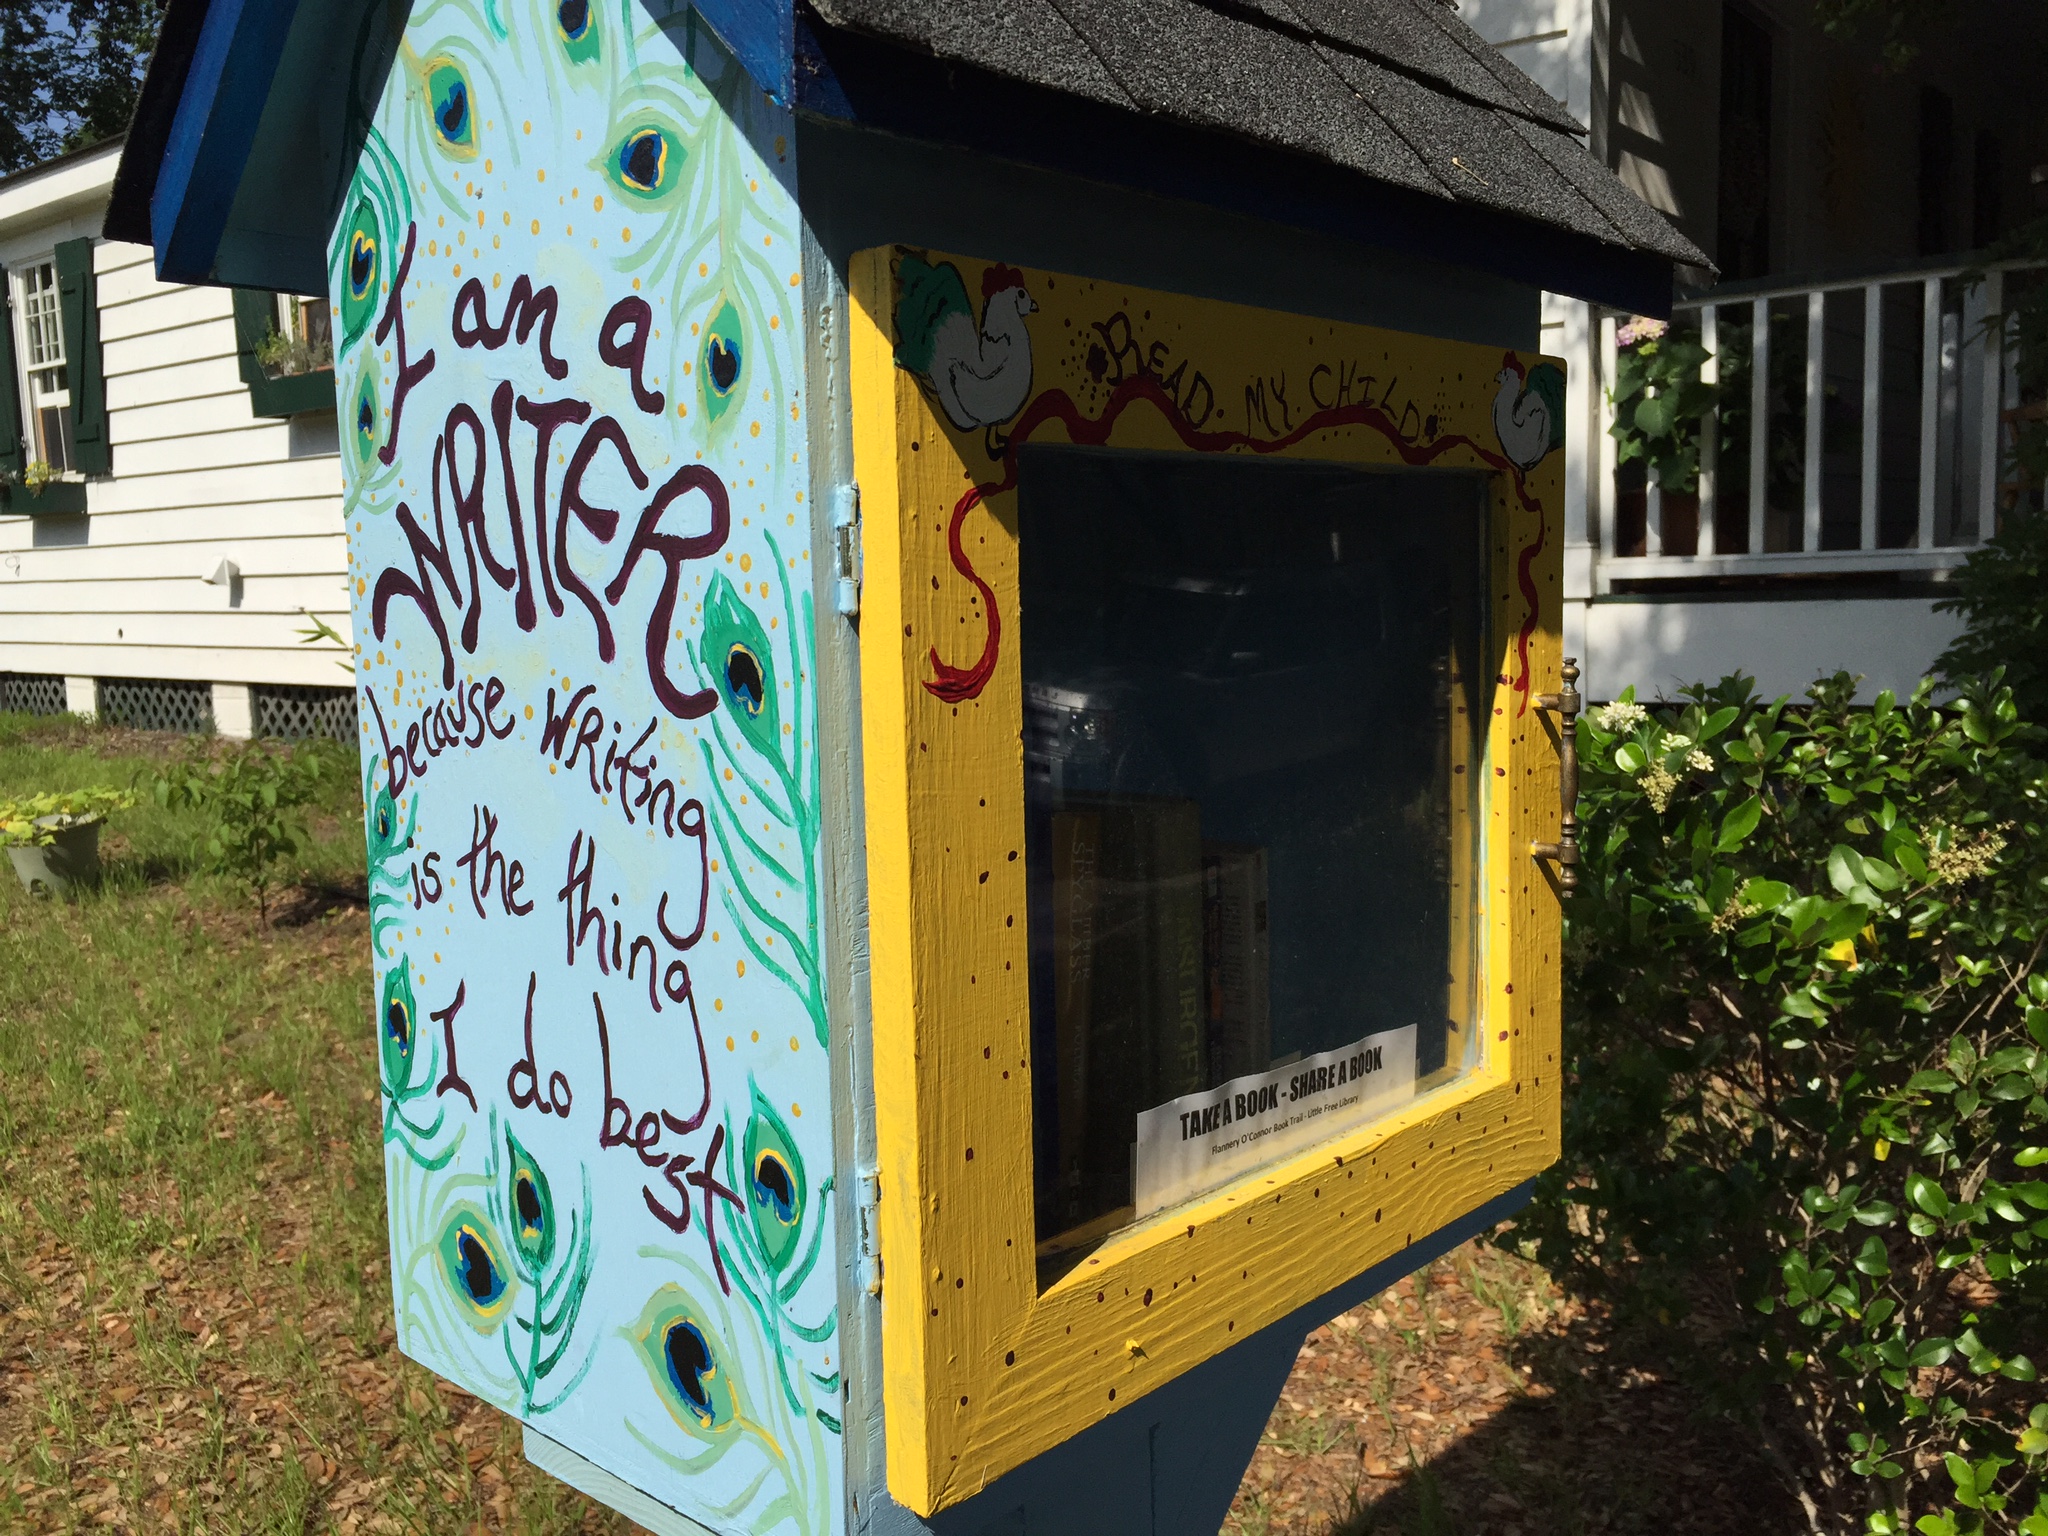 I am a
WRITER
because writing
is the thing
I do best
READ MY CHILD
TAKE A BOOK - SHARE A BOOK
Flannery O'Connor Book Trail - Little Free Library
INSURGENT